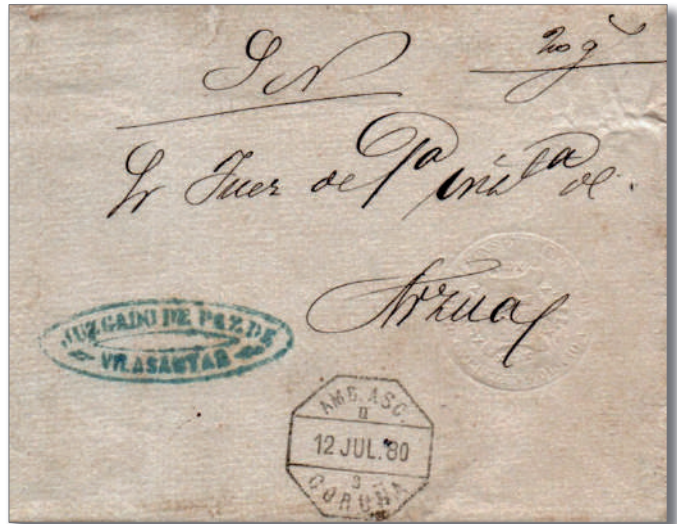 S N
20 g
Sr Juez de 1ª insª de
Arzua
JUZGADO DE PAZ DE
VILASANTAR
AMB. ASC.
II
12 JUL. 80
3
CORUÑA